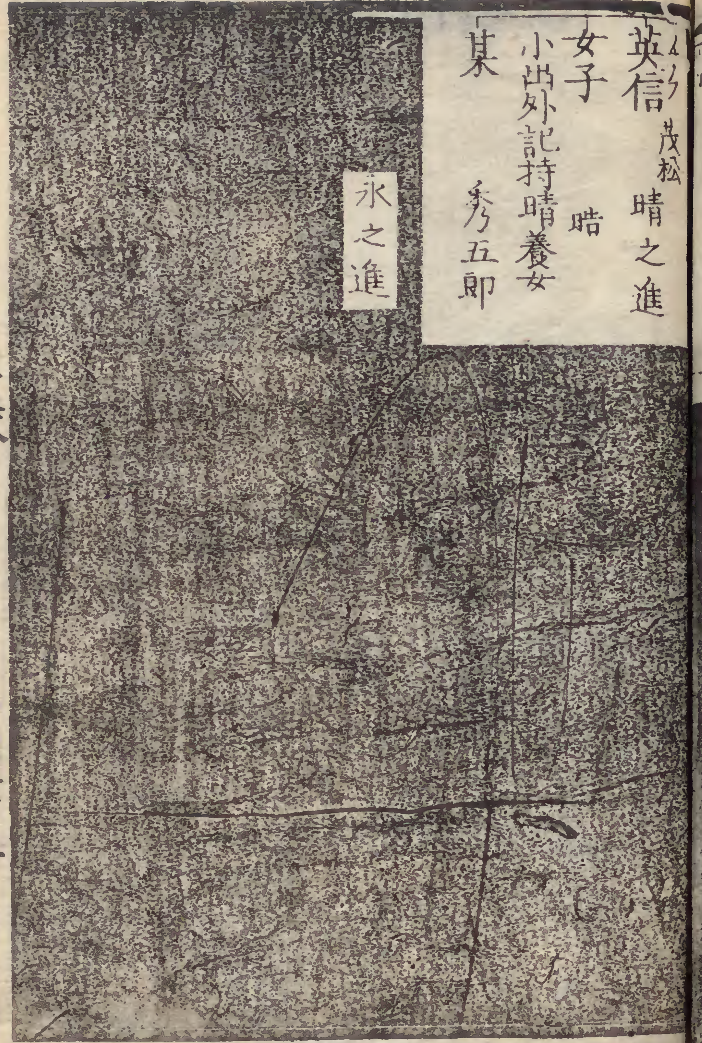 英信 茂松 晴之進
女子 晧
小出外記持晴養女
某 秀五郎
永之進